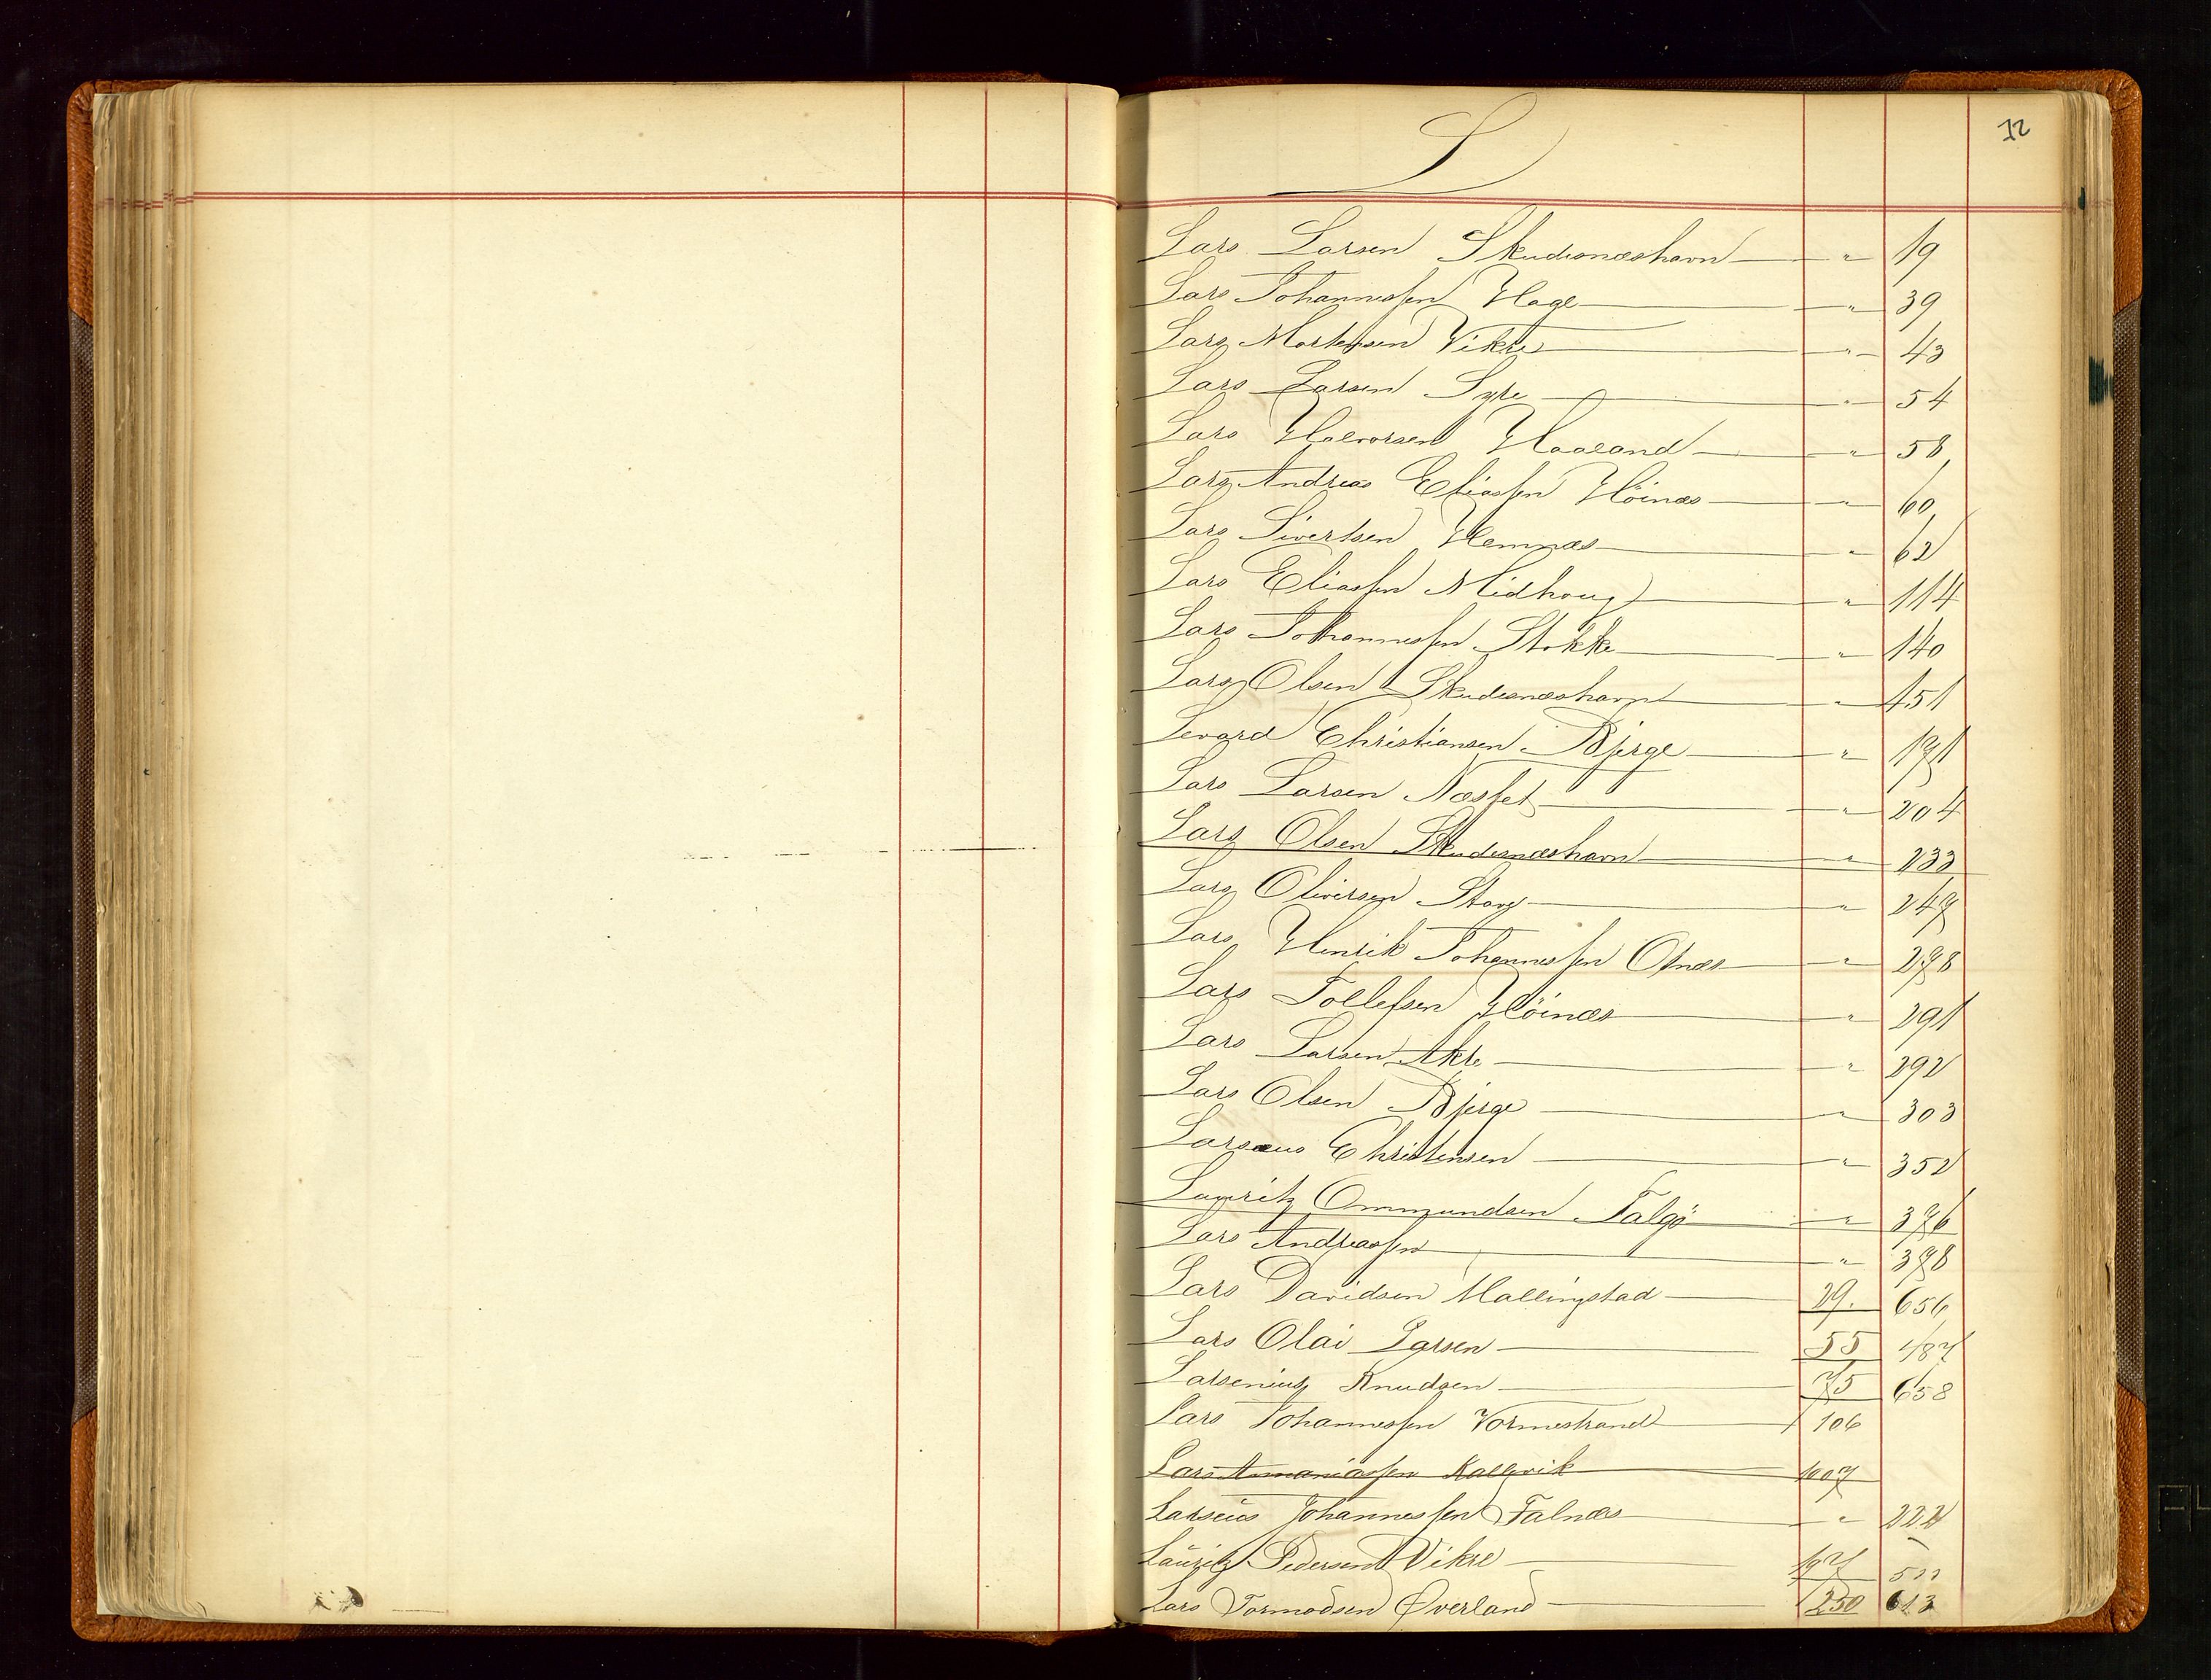 12
L
Lars Larsen Skudesnæshavn — " — 19
Lars Johannessen Hage — " — 39
Lars Mortensen Vikre — " — 43
Lars Larsen Syre — " — 54
Lars Halvorsen Haaland — " — 58
Lars Andreas Eliassen Höinæs — " — 60
Lars Sivertsen Hemnæs — " — 62
Lars Eliassen Midhaug — " — 114
Lars Johannessen Stokke — " — 140
Lars Olsen Skudesnæshavn — " — 151
Levard Christiansen Bjerge — " — 171
Lars Larsen Næsset — " — 204
Lars Olsen Skudesnæshavn — " — 233
Lars Oliversen Stong — " — 247
Lars Henrik Johannessen Otnæs — " — 278
Lars Tollefsen Höinæs — " — 291
Lars Larsen Akre — " — 292
Lars Olsen Bjerge — " — 303
Larsæus Christensen — " — 352
Lauritz Ommundsen Falgö — " — 376
Lars Andreassen — " — 378
Lars Davidsen Mallingstad — 29. 656
Lars Olai Larsen — 55 487
Larsenius Knudsen — 75 658
Lars Johannessen Vormestrand — 106
Lars Annaniassen Kallevik — 107
Larseus Johannessen Falnæs — " — 222
Lauritz Pedersen Vikre — 197 522
Lars Tormodsen Øverland — 250 613